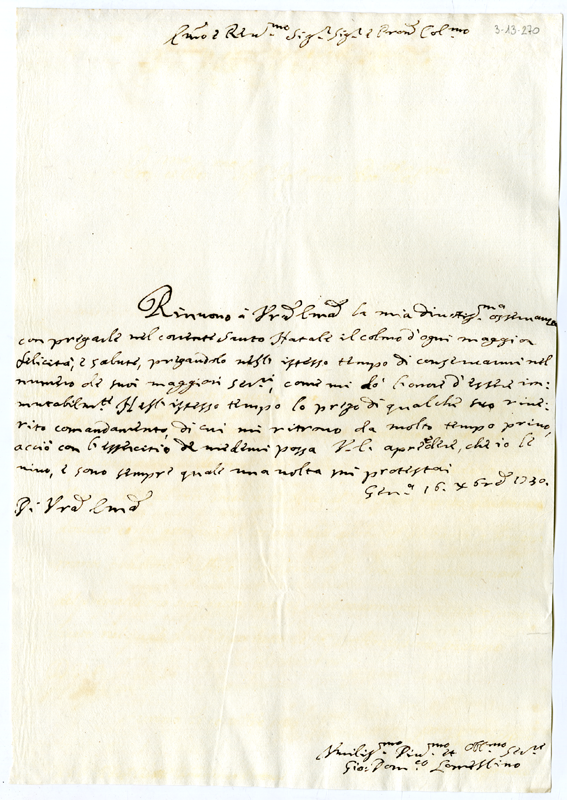 Em̃o e Reu.mo Sig.r Sig.r e Pron̄ Col.mo
3-13-270
Rinuouo à Vr̃a Em̃a la mia diuotis.ma osseruanza
con pregarle nel corrente Santo Natale il colmo d'ogni maggior
felicità, e salute, pregandolo nell'istesso tempo di conseruarmi nel
numero de suoi maggiori Ser.ri, come mi dò l'honore d'essere im-
mutabilm.te Nell'istesso tempo lo prego di qualche suo riue-
rito comandamento, di cui mi ritrouo da molto tempo priuo,
acciò con l'essercitio de medemi possa V. E. aprēdere, che io le
uiuo, e sono sempre quale una uolta mi protestai
Gen.a 16. Xbr̃e 1730.
Di Vr̃a Em̃a
Vmilis.mo Diu.mo et Obl.mo Ser.re
Gio: Dom.co Lomellino